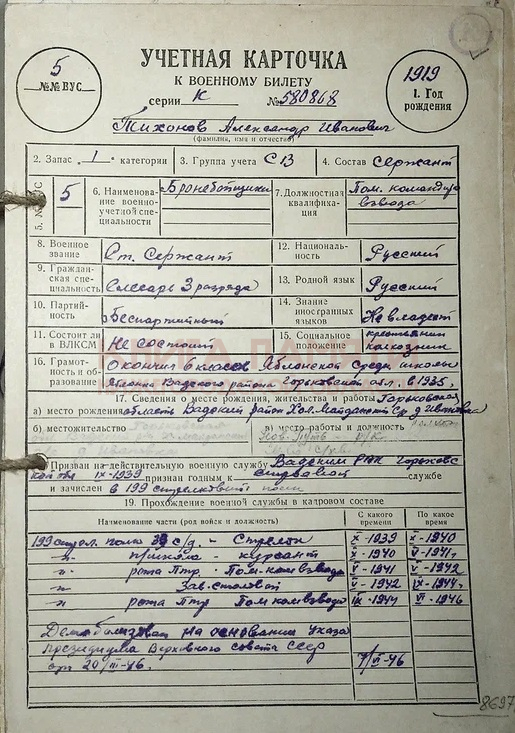 5
№№ ВУС
УЧЕТНАЯ КАРТОЧКА
К ВОЕННОМУ БИЛЕТУ
серии К №580868
1919
1. Год
рождения
Тихонов Александр Иванович
(фамилия, имя и отчество)
2. Запас 1 категории
3. Группа учета С13
4. Состав Сержант
5. № ВУС
5
6. Наименова-
ние военно-
учетной спе-
циальности
Бронебойщики
7. Должностная
квалифика-
ция
Пом. командира
взвода
8. Военное
звание
Ст. Сержант
12. Националь-
ность
Русский
9. Граждан-
ская спе-
циальность
Слесарь 3 разряда
13. Родной язык
Русский
10. Партий-
ность
Беспартийный
14. Знание
иностранных
языков
Не владеет
11. Состоит ли
в ВЛКСМ
Не состоит
15. Социальное
положение
крестьянин
колхозник
16. Грамот-
ность и об-
разование
Окончил 6 классов Яблонской средн школы
Вадского района Горьковской обл. в 1935.
17. Сведения о месте рождения, жительства и работы Горьковская
а) место рождения область Вадский район Хол. Майданский Ср. д
б) местожительство
в) место работы и должность
18. Призван на действительную военную службу Вадским РВК Горьковс
кой обл IX-1939 признан годным к строевой службе
и зачислен в 199 стрелковый полк
19. Прохождение военной службы в кадровом составе
Наименование части (род войск и должность)
С какого
времени
По какое
время
199 стрел. полк 39 с/д. - Стрелок X-1939 X-1940
-"- школа - курсант X-1940 V-1941г
-"- рота ПТР. Пом. ком взвода V-1941 V-1942
-"- Зав. столовой V-1942 IX-1944г.
-"- рота ПТР Пом ком взвода IX-1944 V-1946
Демобилизован на основании Указа
Президиума Верховного Совета СССР
от 20/III-46.
8697